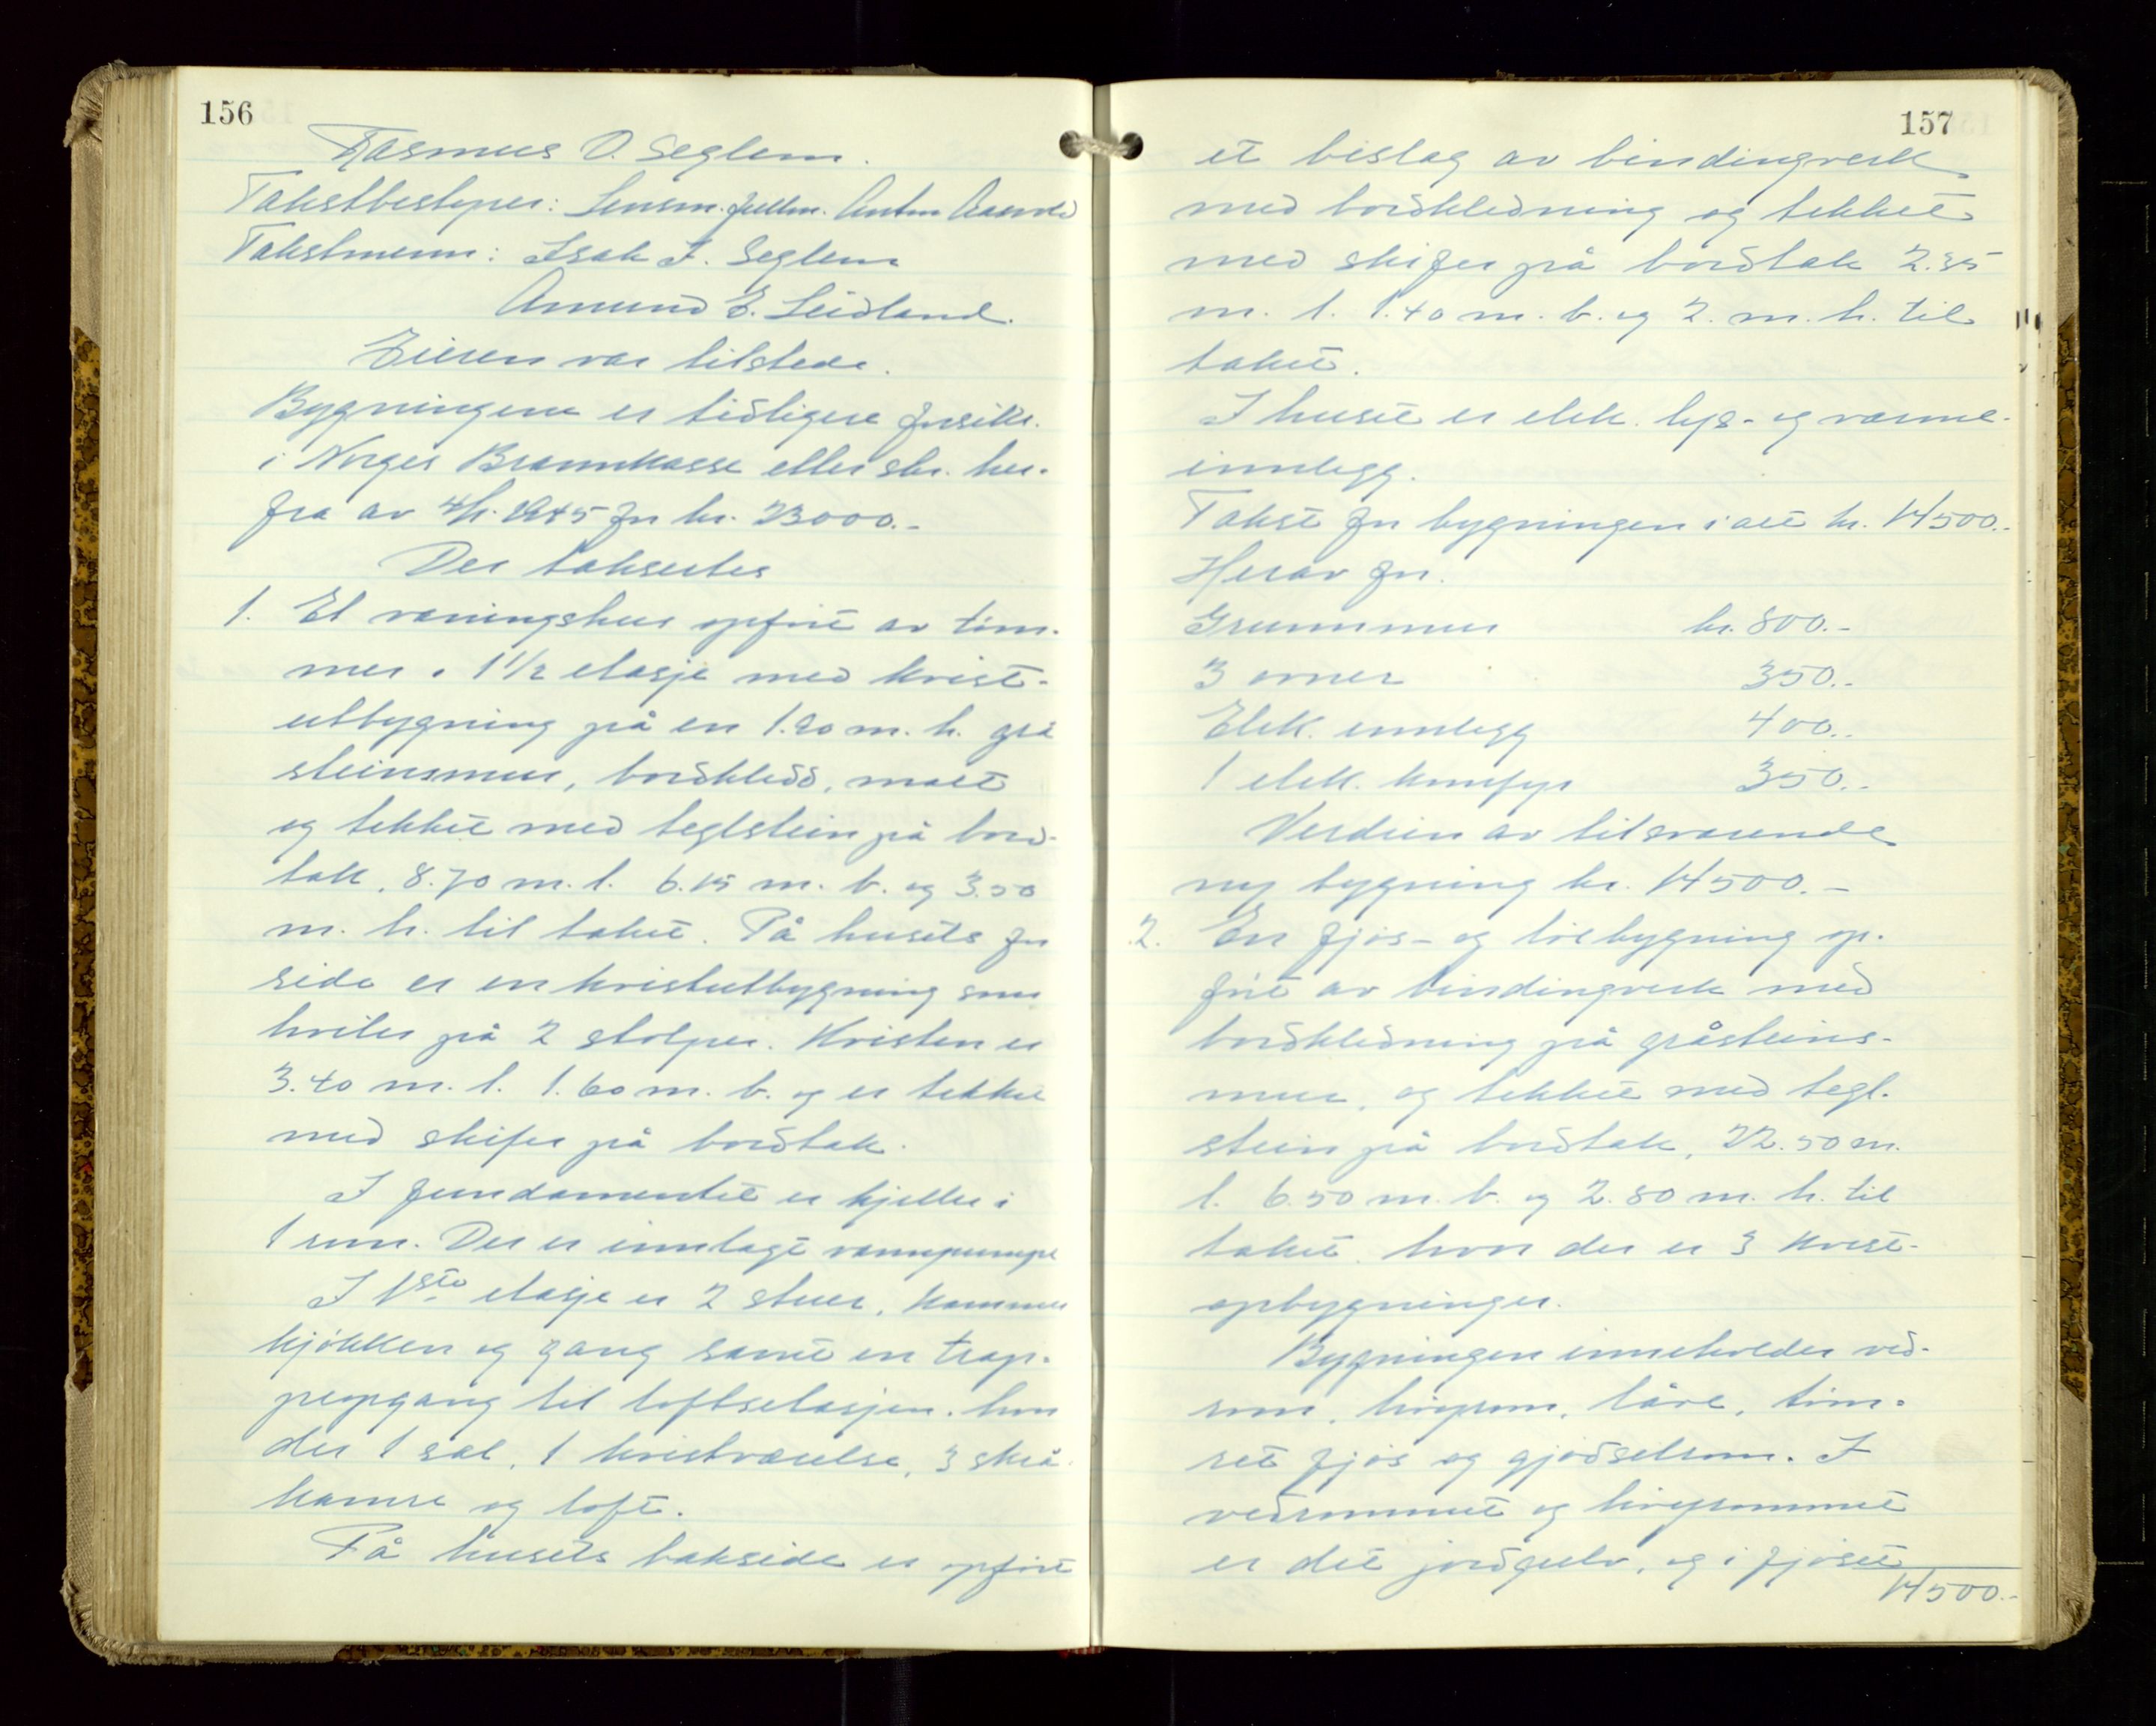 156
Rasmus O. Seglem.
Takstbestyrer: Lensm. fullm. Anton
Takstmenn: Isak I. Seglem
Amund E. Leidland.
Eieren var tilstede.
Bygningene er tidligere forsikr.
i Norges Brannkasse etter skr. her-
fra av 1945 for kr. 23000.-
Der taksertes
1. Et våningshus opført av töm-
mer i 1 1/2 etasje med kvist-
utbygning på en 1.20 m. h. grå
steinsmur, bordkledd, malt
og tekket med teglstein på bord-
tak, 8.70 m. l. 6.15 m. b. og 3.50
m. h. til taket. På husets for
side er en kvistutbygning som
hviler på 2 stolper. Kvisten er
3.40 m. l. 1.60 m. b. og er tekket
med skifer på bordtak.
I fundamentet er kjeller i
1 rom. Der er innlagt vannpumpe
I 1ste etasje er 2 stuer, kammer
kjökken og gang samt en trap-
peopgang til loftsetasjen. hvor
der 1 sal, 1 kvistværelse, 3 skrå-
kamre og loft.
På husets bakside er opført
157
et bislag av bindingverk
med bordkledning og tekket
med skifer på bordtak 2.35
m. l. 1.40 m. b. og 2. m. h. til
taket.
I huset er elek. lys- og varme-
innlegg.
Takst for bygningen i alt kr. 14500.-
Herav for.
Grunnmur kr. 800.-
3 ovner 350.-
Elek. innlegg 400.-
1 elek. komfyr 350.-
Verdien av tilsvarende
ny bygning kr. 14500.-
2. En fjös- og löebygning op-
fört av bindingverk med
bordkledning på gråsteins-
mur, og tekket med tegl-
stein på bordtak, 22.50 m.
l. 6.50 m. b. og 2.80 m. h. til
taket hvor der er 3 kvist-
opbygninger.
Bygningen inneholder ved-
rom, låve, töm-
ret fjös og gjödselrom. I
vedrommet og
er det jordgulv, og i fjöset
14500.-